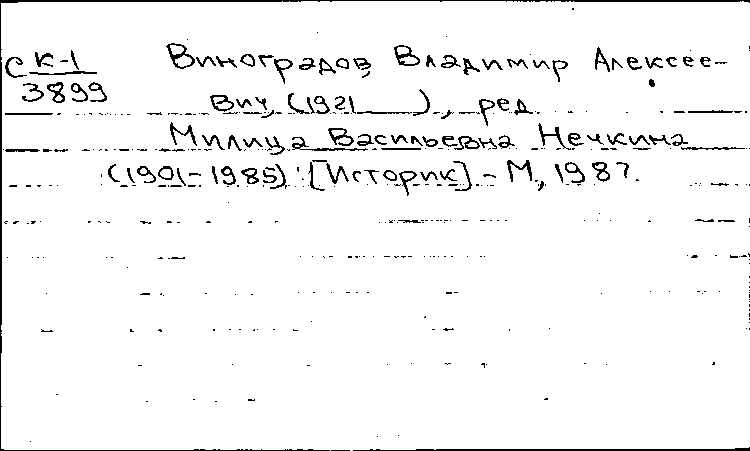 С К-1
3899
Виноградов, Владимир Алексее-
вич, (1921 ), ред.
Милица Васильевна Нечкина
(1901-1985): [Историк] - М., 1987.